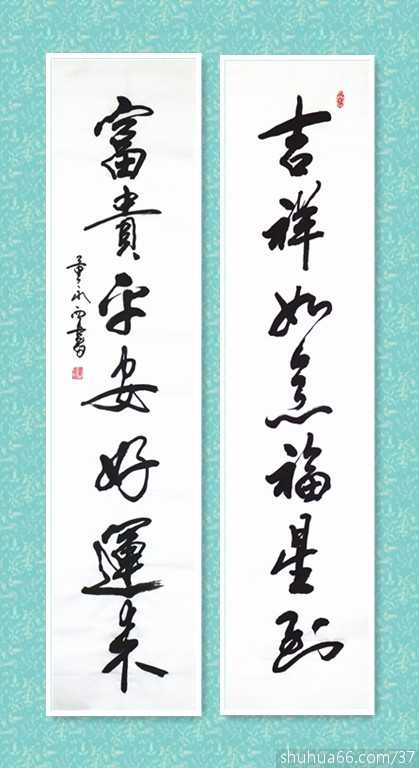 吉祥如意福星到
富貴平安好運来
shuhua66.com/37